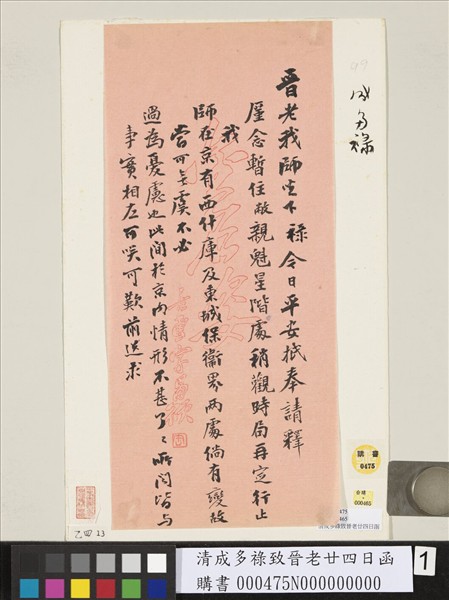 晉老我師坐下祿今日平安抵奉請釋
廑念暫住敝親魁星階處稍觀時局再定行止
我
師在京有西什庫及東城保衛界兩處倘有變故
當可無虞不必
過為憂慮也此間於京內情形不甚了了所聞皆与
事實相左可笑可歎前送求
成多祿
購書
0475
000465
乙四 13
清成多祿致晉老廿四日函
購書 000475N000000000
1